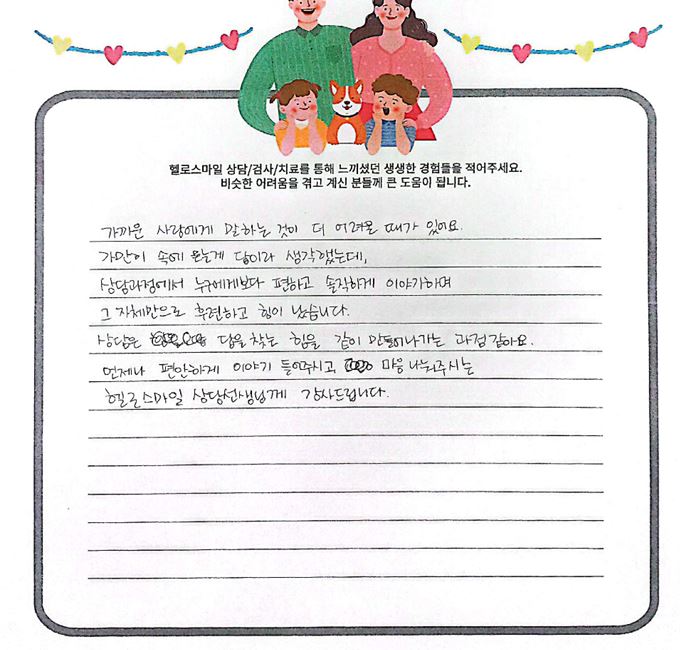 헬로스마일 상담/검사/치료를 통해 느끼셨던 생생한 경험들을 적어주세요.
비슷한 어려움을 겪고 계신 분들께 큰 도움이 됩니다.
가까운 사람에게 말하는 것이 더 어려울 때가 있어요.
가만히 속에 묻는게 답이라 생각했는데,
상담과정에서 누구에게보다 편하고 솔직하게 이야기하며
그 자체만으로 후련하고 힘이 났습니다.
상담은 답을 찾는 힘을 같이 만들어나가는 과정같아요.
언제나 편안하게 이야기 들어주시고 마음 나눠주시는
헬로스마일 상담선생님께 감사드립니다.